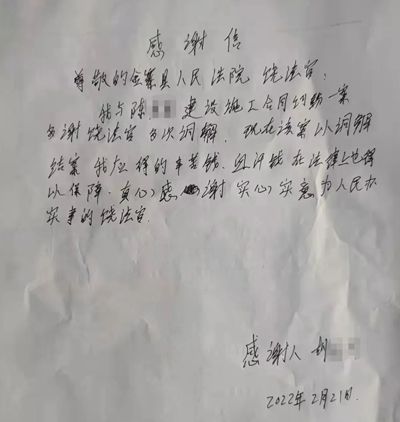 感谢信
尊敬的金寨县人民法院 饶法官:
我与陈 建设施工合同纠纷一案
多谢饶法官多次调解. 现在该案以调解
结案 我应得的辛苦钱. 血汗钱在法律上也得
以保障. 真心感谢 实心实意为人民办
实事的饶法官.
感谢人 胡
2022年2月21日.